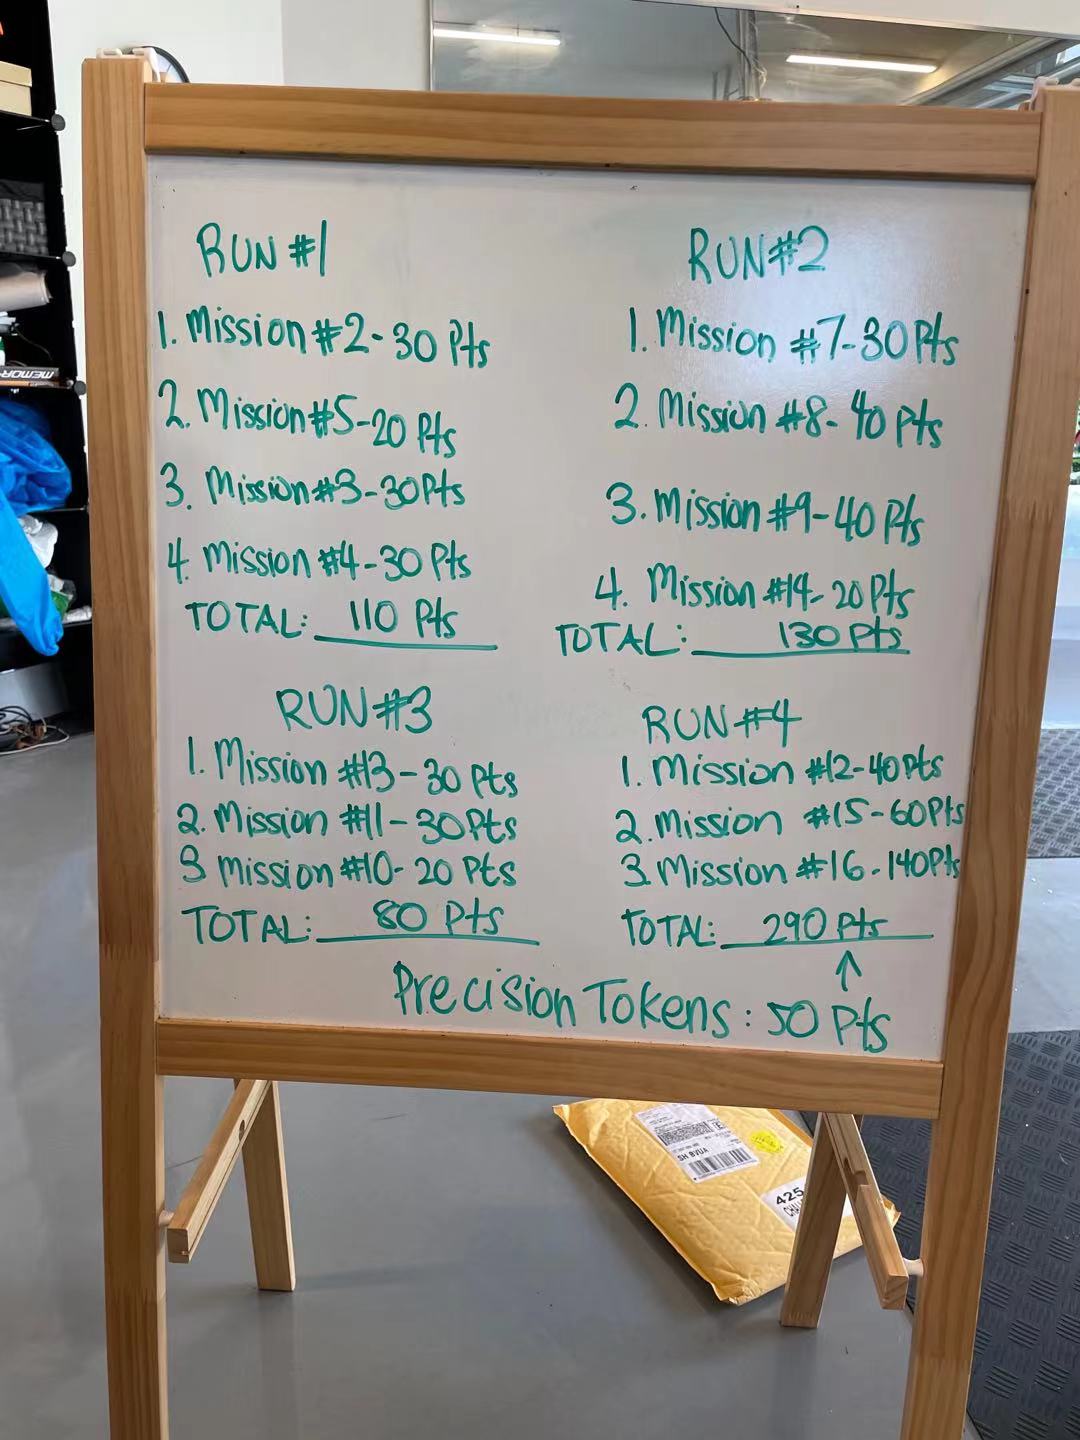 RUN #1
1. Mission #2 - 30 Pts
2. Mission #5 - 20 Pts
3. Mission #3 - 30 Pts
4. Mission #4 - 30 Pts
TOTAL: 110 Pts
RUN #2
1. Mission #7 - 30 Pts
2. Mission #8 - 40 Pts
3. Mission #9 - 40 Pts
4. Mission #14 - 20 Pts
TOTAL: 130 Pts
RUN #3
1. Mission #13 - 30 Pts
2. Mission #11 - 30 Pts
3 Mission #10 - 20 Pts
TOTAL: 80 Pts
RUN #4
1. Mission #12 - 40 Pts
2. Mission #15 - 60 Pts
3. Mission #16 - 140 Pts
TOTAL: 290 Pts
↑
Precision Tokens: 50 Pts
SH BVUA
425